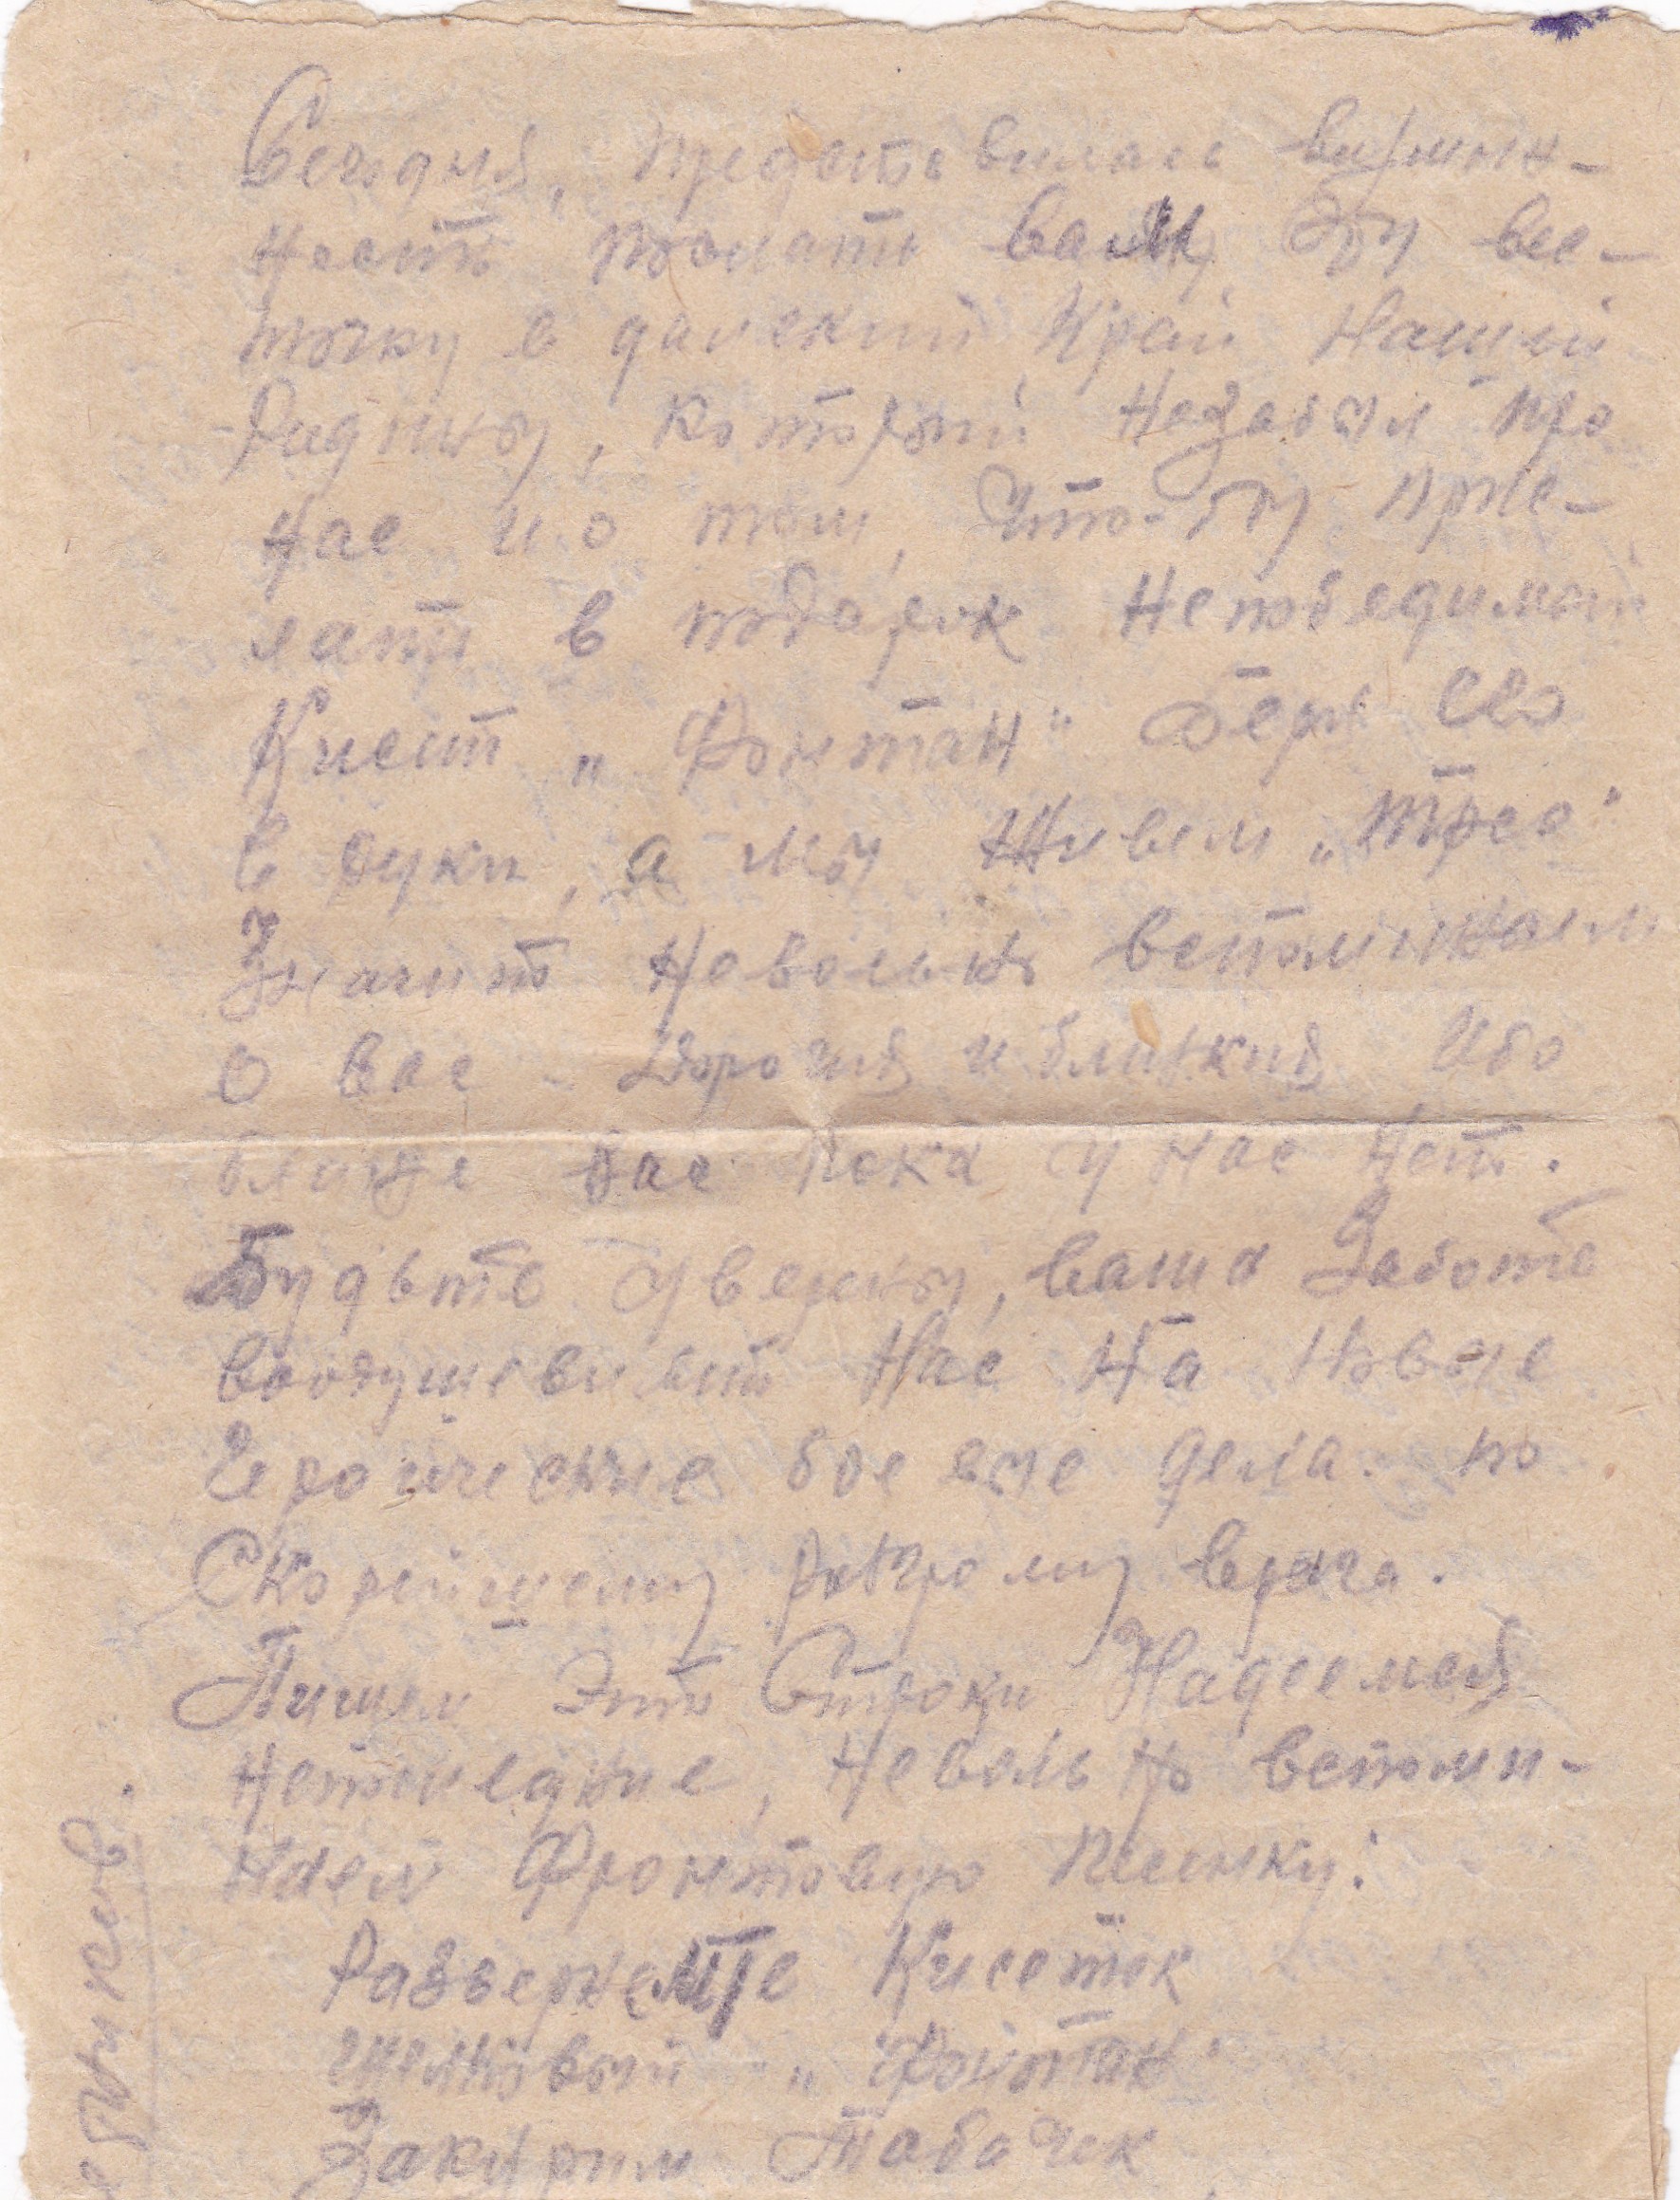 Сегодня, предоставилась возможн-
ность послать вам эту вес-
точку в далекий Край Нашей
Родины, который Незабыл про
Нас и о том, Что-бы прис-
лать в подарок Непобедимый
Кисет „Фонтан" Беря Его
в руки, а мы Живем „Трео"
Значит Невольно вспоминаем
о вас - Дорогия и близкия Ибо
ближе вас пока у нас Нет.
Будьте Уверены, ваша Забота
воодушевит Нас На Новые
Героические боевые дела. по
Скорейшему разгрому врага.
Пишем Эти Строки, Надеемся
Непоследние, Невольно вспоми-
наем Фронтовую Песенку:
Развернемте Кисеток
шелковый „Фонтан"
Закурим Табачек